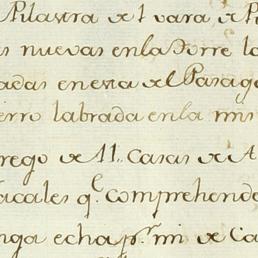 Pilastra de 1 vara de Pi
as nuevas enla Torre la
adas enesta del Parage
ierro labrada enla mis
rego de 11.. Casas de A
acales q.e comprehende
nga echa p.r mi de Ca